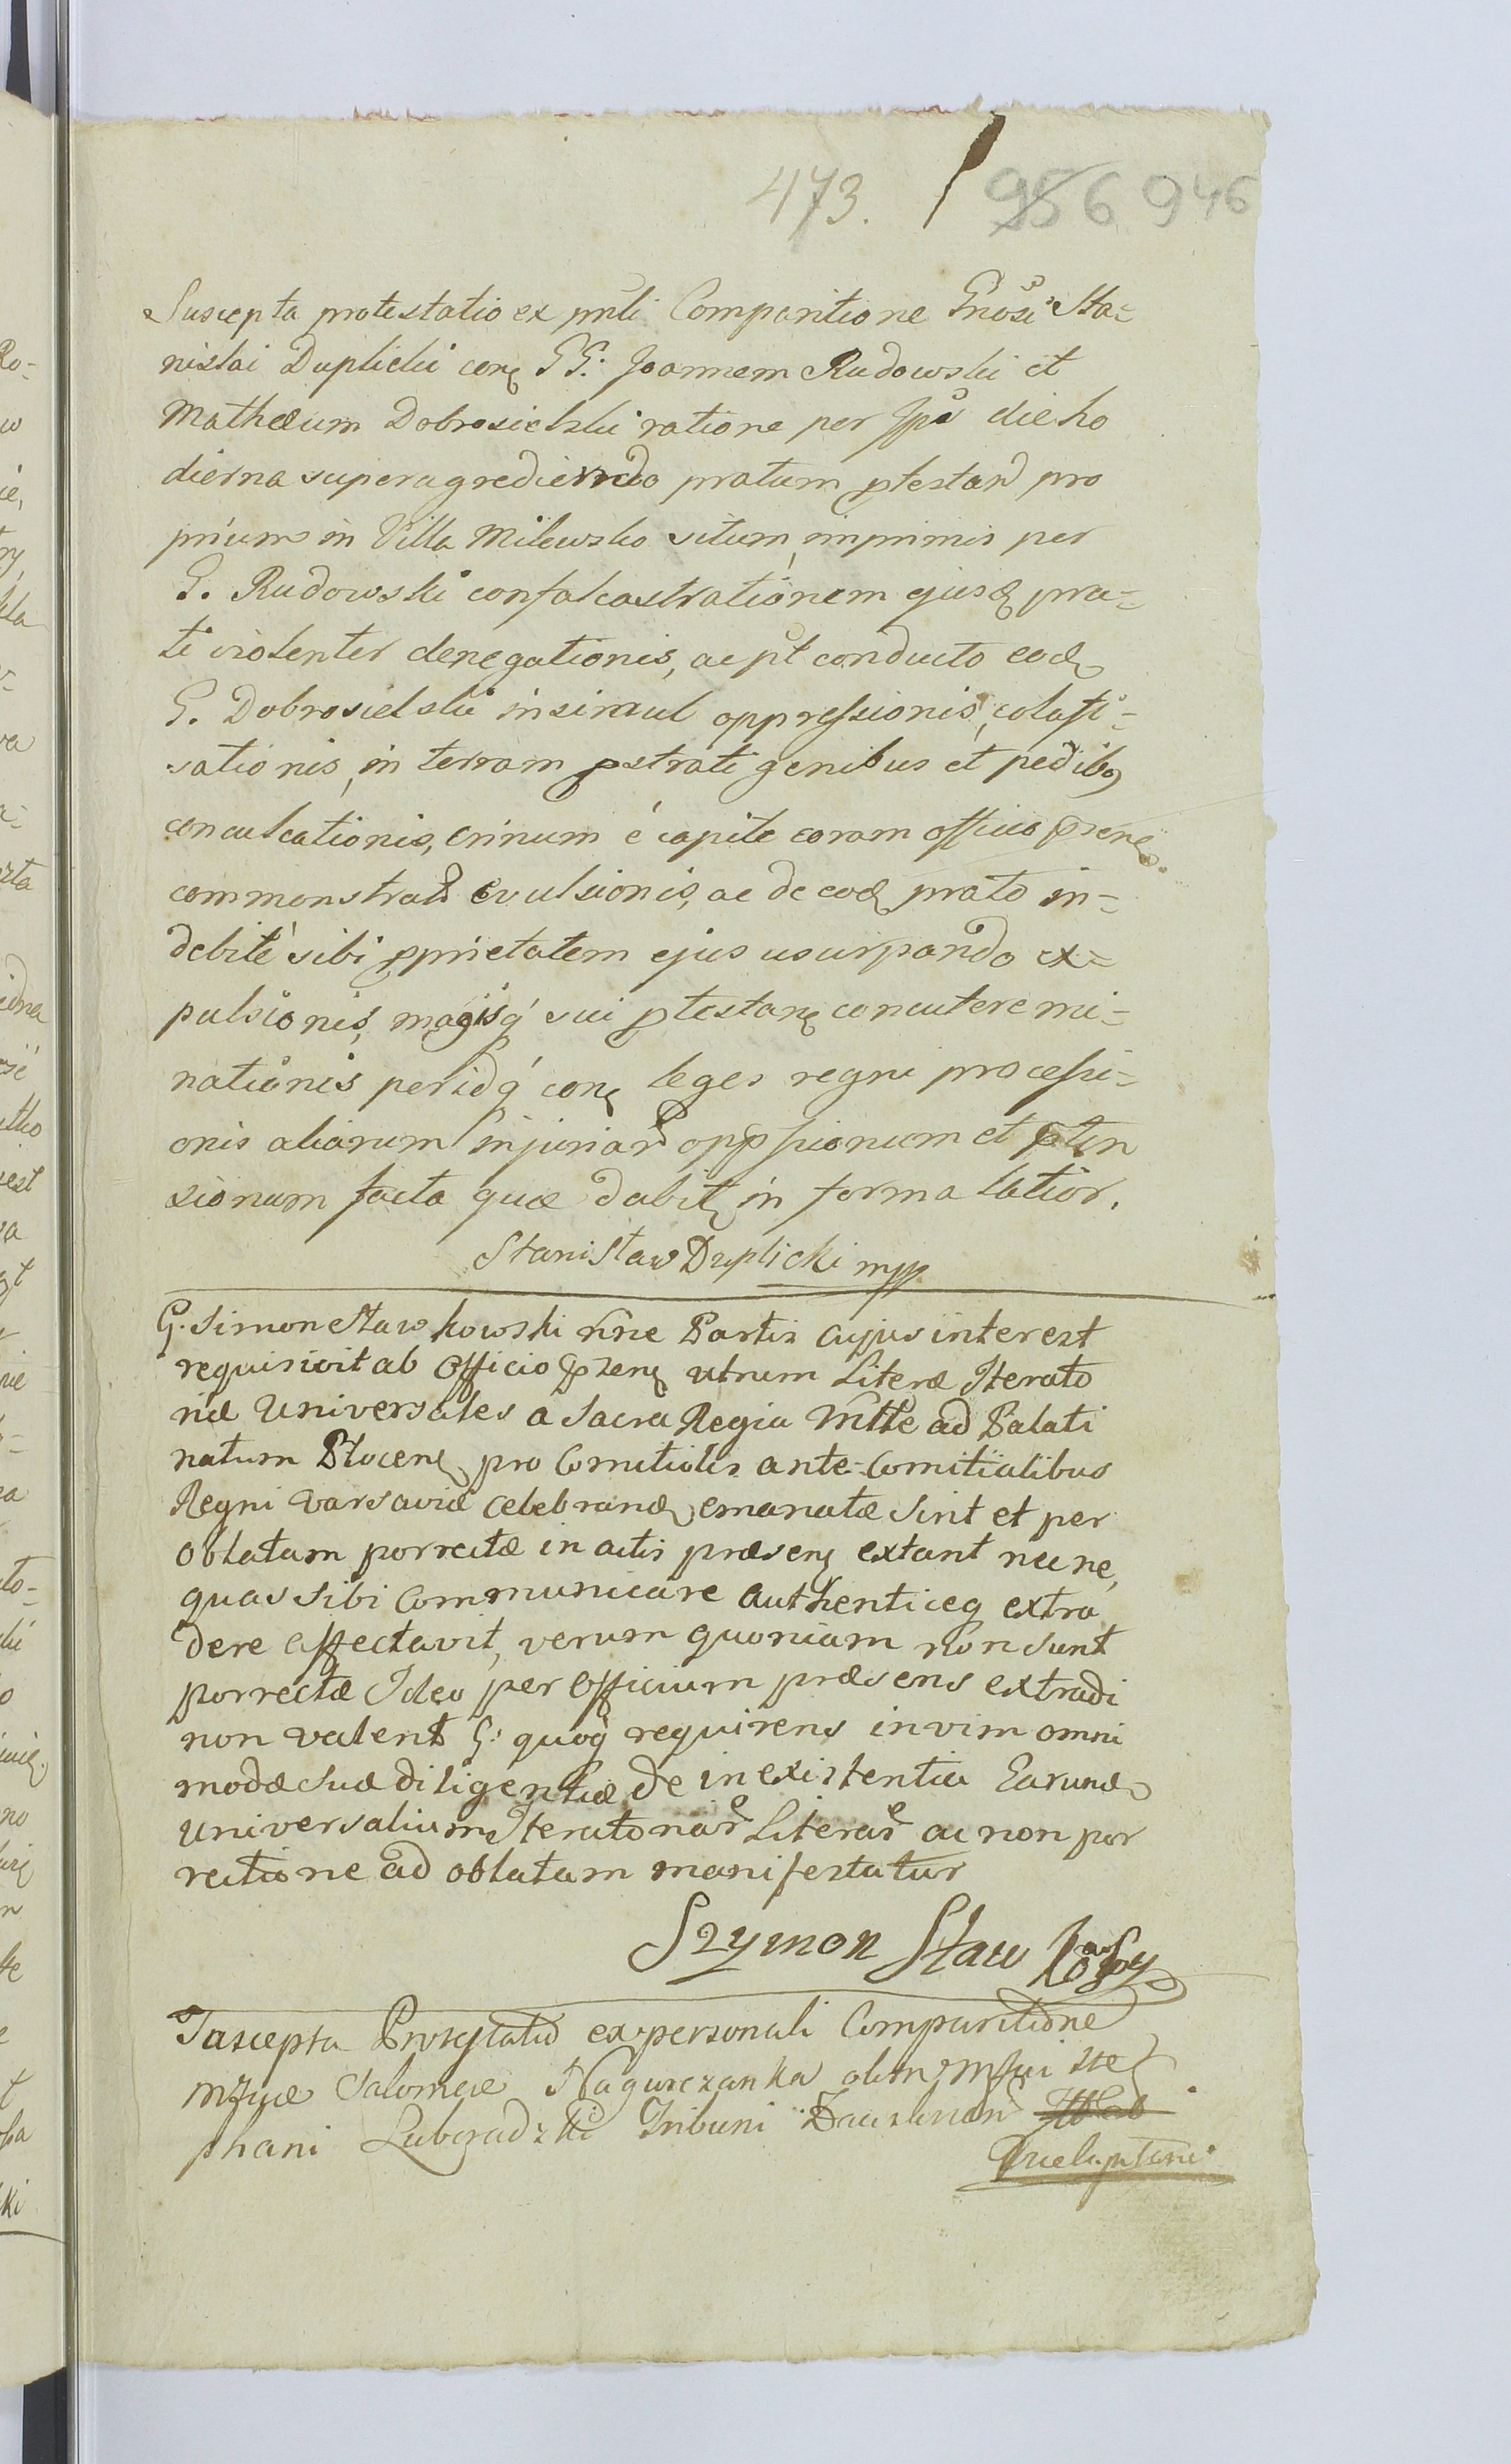 473. 956 946
Suscepta protestatio ex pnli Comparitione Gnosi Sta=
nislai Duplicki con GG. Joannem Rudowski et
Mathæum Dobrosielski ratione per Ipos die ho
dierna superagrediendo pratum ptestan pro
prium in Villa Milewsko situm, imprimis per
G. Rudowski confalcastrationem ejusd pra=
ti violenter denegationis, ac pt conducto eod
G. Dobrosielski insimul oppressionis, colafi=
sationis, in terram pstrati genibus et pedibq
conculcationis, crinum é capite coram officio psen
commonstrat evulsionis, ac de eod prato in=
debité sibi pprietatem ejus usurpando ex=
pulsionis, magisq sui ptestan concutere mi=
nationis peridq con leges regni processi=
onis aliarum injuriar oppssionum et pten
sionum facta quæ dabit in forma latior.
Stanisław Duplicki mpp
G. Simon Stawkowski nne Partis cujus interest
requisivit ab Officio psen utrum Literæ Iterato
riæ Universales a Sacra Regia Mtte ad Palati
natum Plocen pro Comitiolis ante-Comitialibus
Regni Varsaviæ celebrand emanatæ sint et per
oblatam porrectæ in actis præsen extant nec ne,
quas sibi Communicare authenticeq extra
dere affectavit, verum quoniam non sunt
porrectæ Ideo per Officium præsens extradi
non valent G. quoq requirens in vim omni
modæ suæ diligentiæ de inexistentia Earund
Universalium Iteratoriar Literar ac non por
rectione ad oblatam manifestatur
Szymon Staw
Suscepta Protestatio ex personali Comparitione
Mficæ Salomeæ Nagurczanka olim Mfici Ste
phani Luberadzki Tribuni